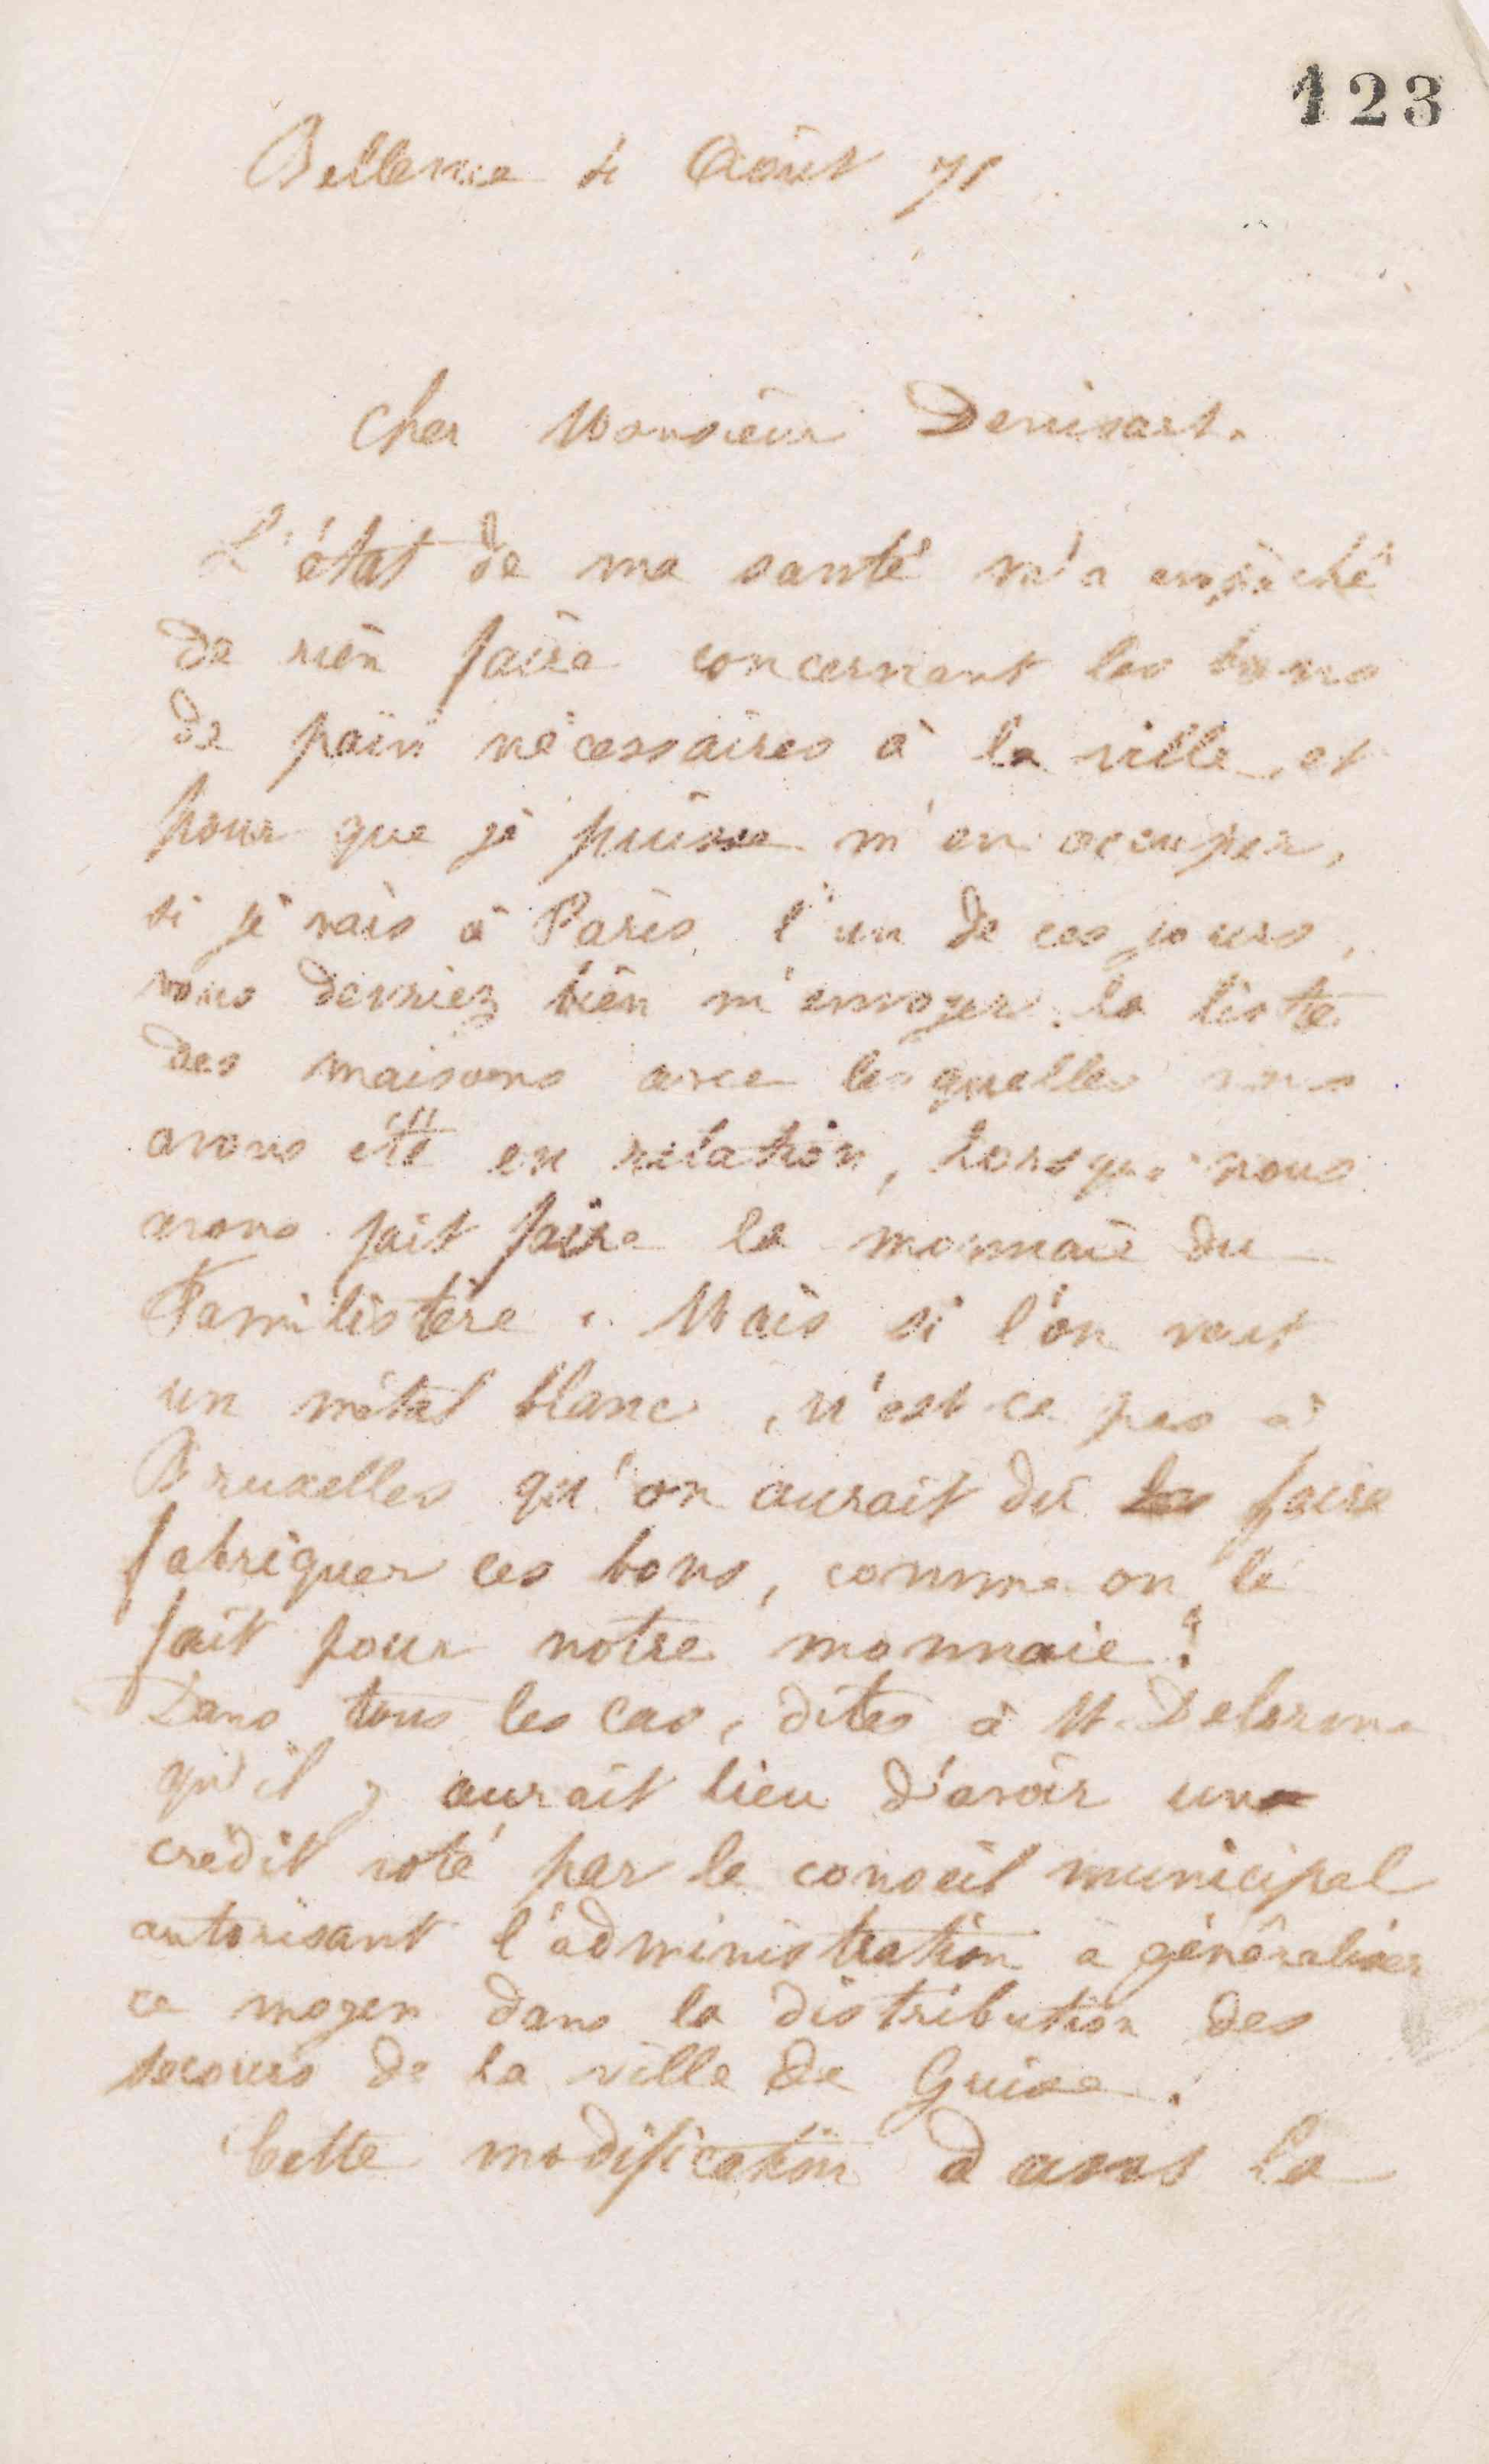 123
Bellevue 4 Août 71
Cher Monsieur Denisart.
L'état de ma santé m'a empêché
de rien faire concernant les bons
de pain nécessaires à la ville, et
pour que je puisse m'en occuper,
si je vais à Paris, l'un de ces jours,
vous devriez bien m'envoyer la liste
des maisons avec lesquelles nous
avons été en relation, lorsque nous
avons fait faire la monnaie du
Familistère. Mais si l'on veut
un métal blanc, n'est-ce pas à
Bruxelles qu'on aurait dû faire
fabriquer ces bons, comme on l'a
fait pour notre monnaie?
Dans tous les cas, dites à M. Delorme
qu'il y aurait lieu d'avoir un
crédit voté par le conseil municipal
autorisant l'administration à généraliser
ce moyen dans la distribution des
secours de la ville de Guise.
Cette modification dans la